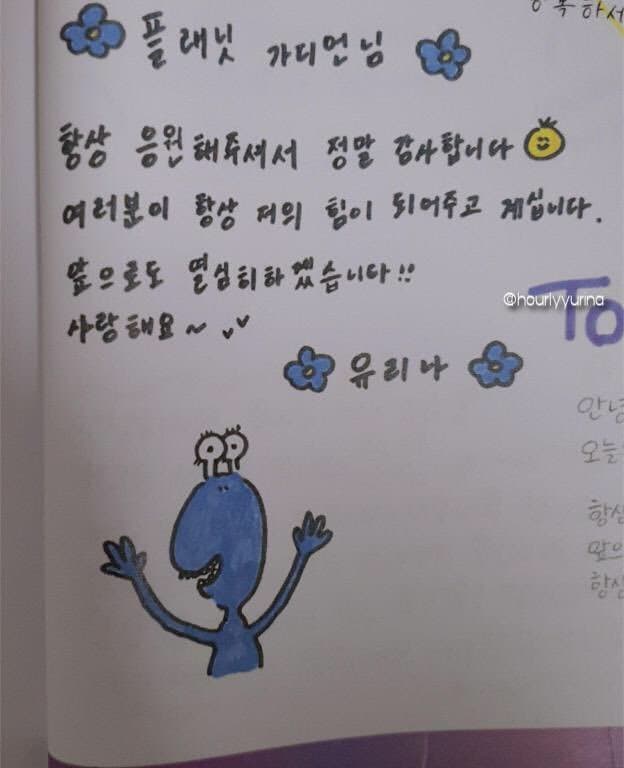 플래닛 가디언님
항상 응원해주셔서 정말 감사합니다
여러분이 항상 저의 힘이 되어주고 계십니다.
앞으로도 열심히하겠습니다!!
사랑해요~
유리나
@hourlyyurina
To
안녕
오늘
항상
앞으
항상